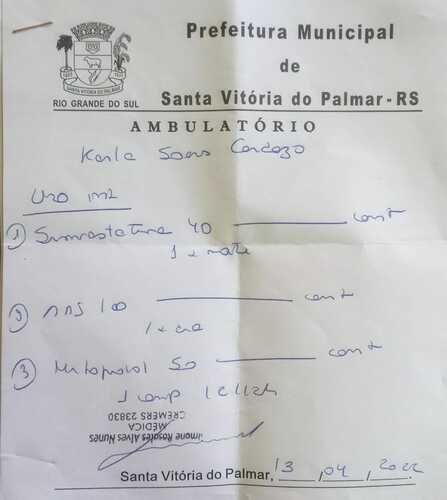 Prefeitura Municipal
de
Santa Vitória do Palmar-RS
RIO GRANDE DO SUL
AMBULATÓRIO
Karla Soares Cardozo
Uso
1) Sinvastatina 40 ——— cont
1 x noite
2) AAS 100 ——— cont
1 x dia
3) Metoprolol 50 ——— cont
1 comp 12/12h
Simone Rosales Alves Nunes
MÉDICA
CREMERS 23830
Santa Vitória do Palmar, 13, 04, 2022